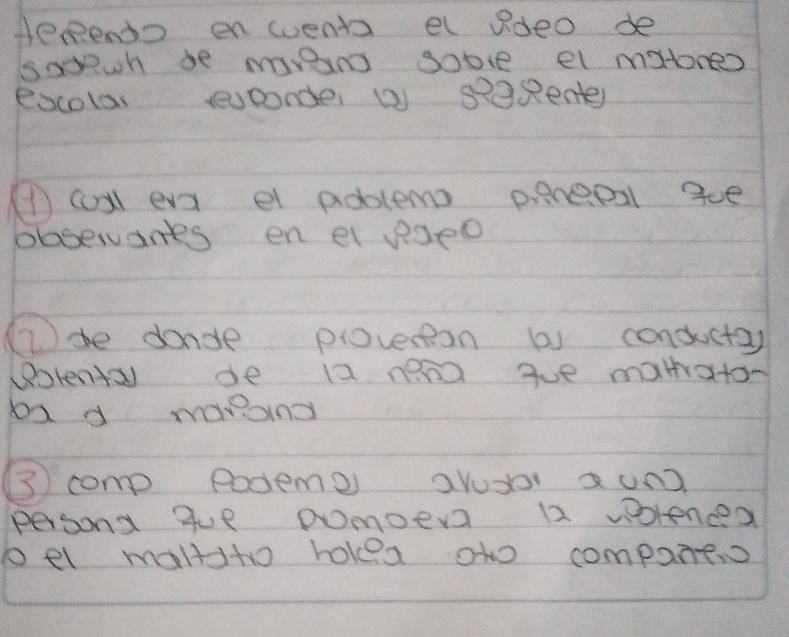 teniendo en cuenta el video de
de mariana sobre el matoneo
escolar responder las siguientes
① cual era el problema principal que
observantes en el video
② de donde provenian las conductas
violentas de la niña que maltrata-
ba a mariana
③ como podemos ayudar a una
persona que promoeva la violencia
o el maltrato hacia otro compañero